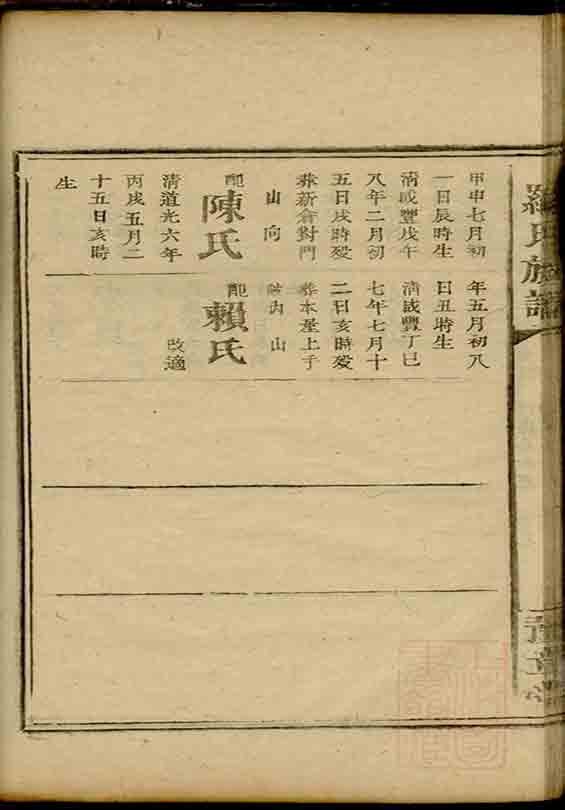 羅氏族譜
甲申七月初
一日辰時生
清咸豐戊午
八年二月初
五日戌時歿
葬新倉對門
山向
配
陳氏
清道光六年
丙戌五月二
十五日亥時
生
年五月初八
日丑時生
清咸豐丁巳
七年七月十
二日亥時歿
葬本屋上手
山
配
賴氏
改適